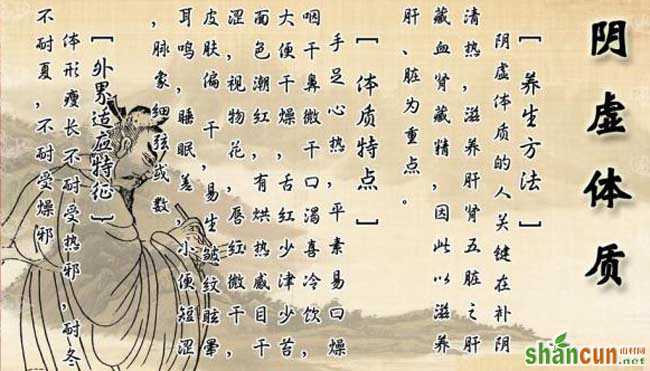 阴虚体质
[养生方法]
阴虚体质的人关键在补阴
清热,滋养肝肾五脏之肝
藏血肾藏精,因此以滋养
肝、脏为重点。
[体质特点]
手足心热,平素易口燥
咽干鼻微干口渴喜冷饮,
大便干燥,舌红少津少苔,
面色潮红,有烘热感目干
涩,视物花,唇红微干,
皮肤偏干,易生皱纹眩晕
耳鸣,睡眠差,小便短涩
,脉象细弦或数
[外界适应特征]
体形瘦长不耐受热邪,耐冬
不耐夏,不耐受燥邪
shancun 山村网
.net